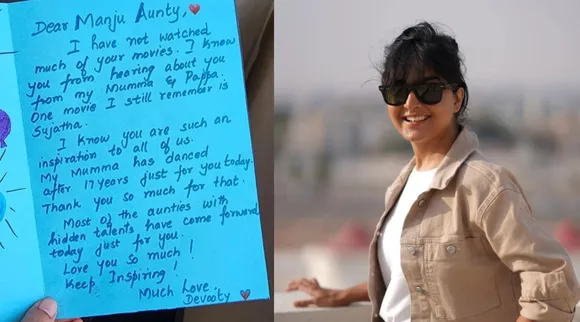 Dear Manju Aunty,
I have not watched
much of your movies. I know
you from hearing about you
from my Mumma & Pappa.
One movie I still remember is
Sujatha.
I know you are such an
inspiration to all of us.
My Mumma has danced
after 17 years just for you today.
Thank you so much for that.
Most of the aunties with
hidden talents have come forward
today just for you.
Love you so much!
Keep Inspiring!
Much Love.
Devooty